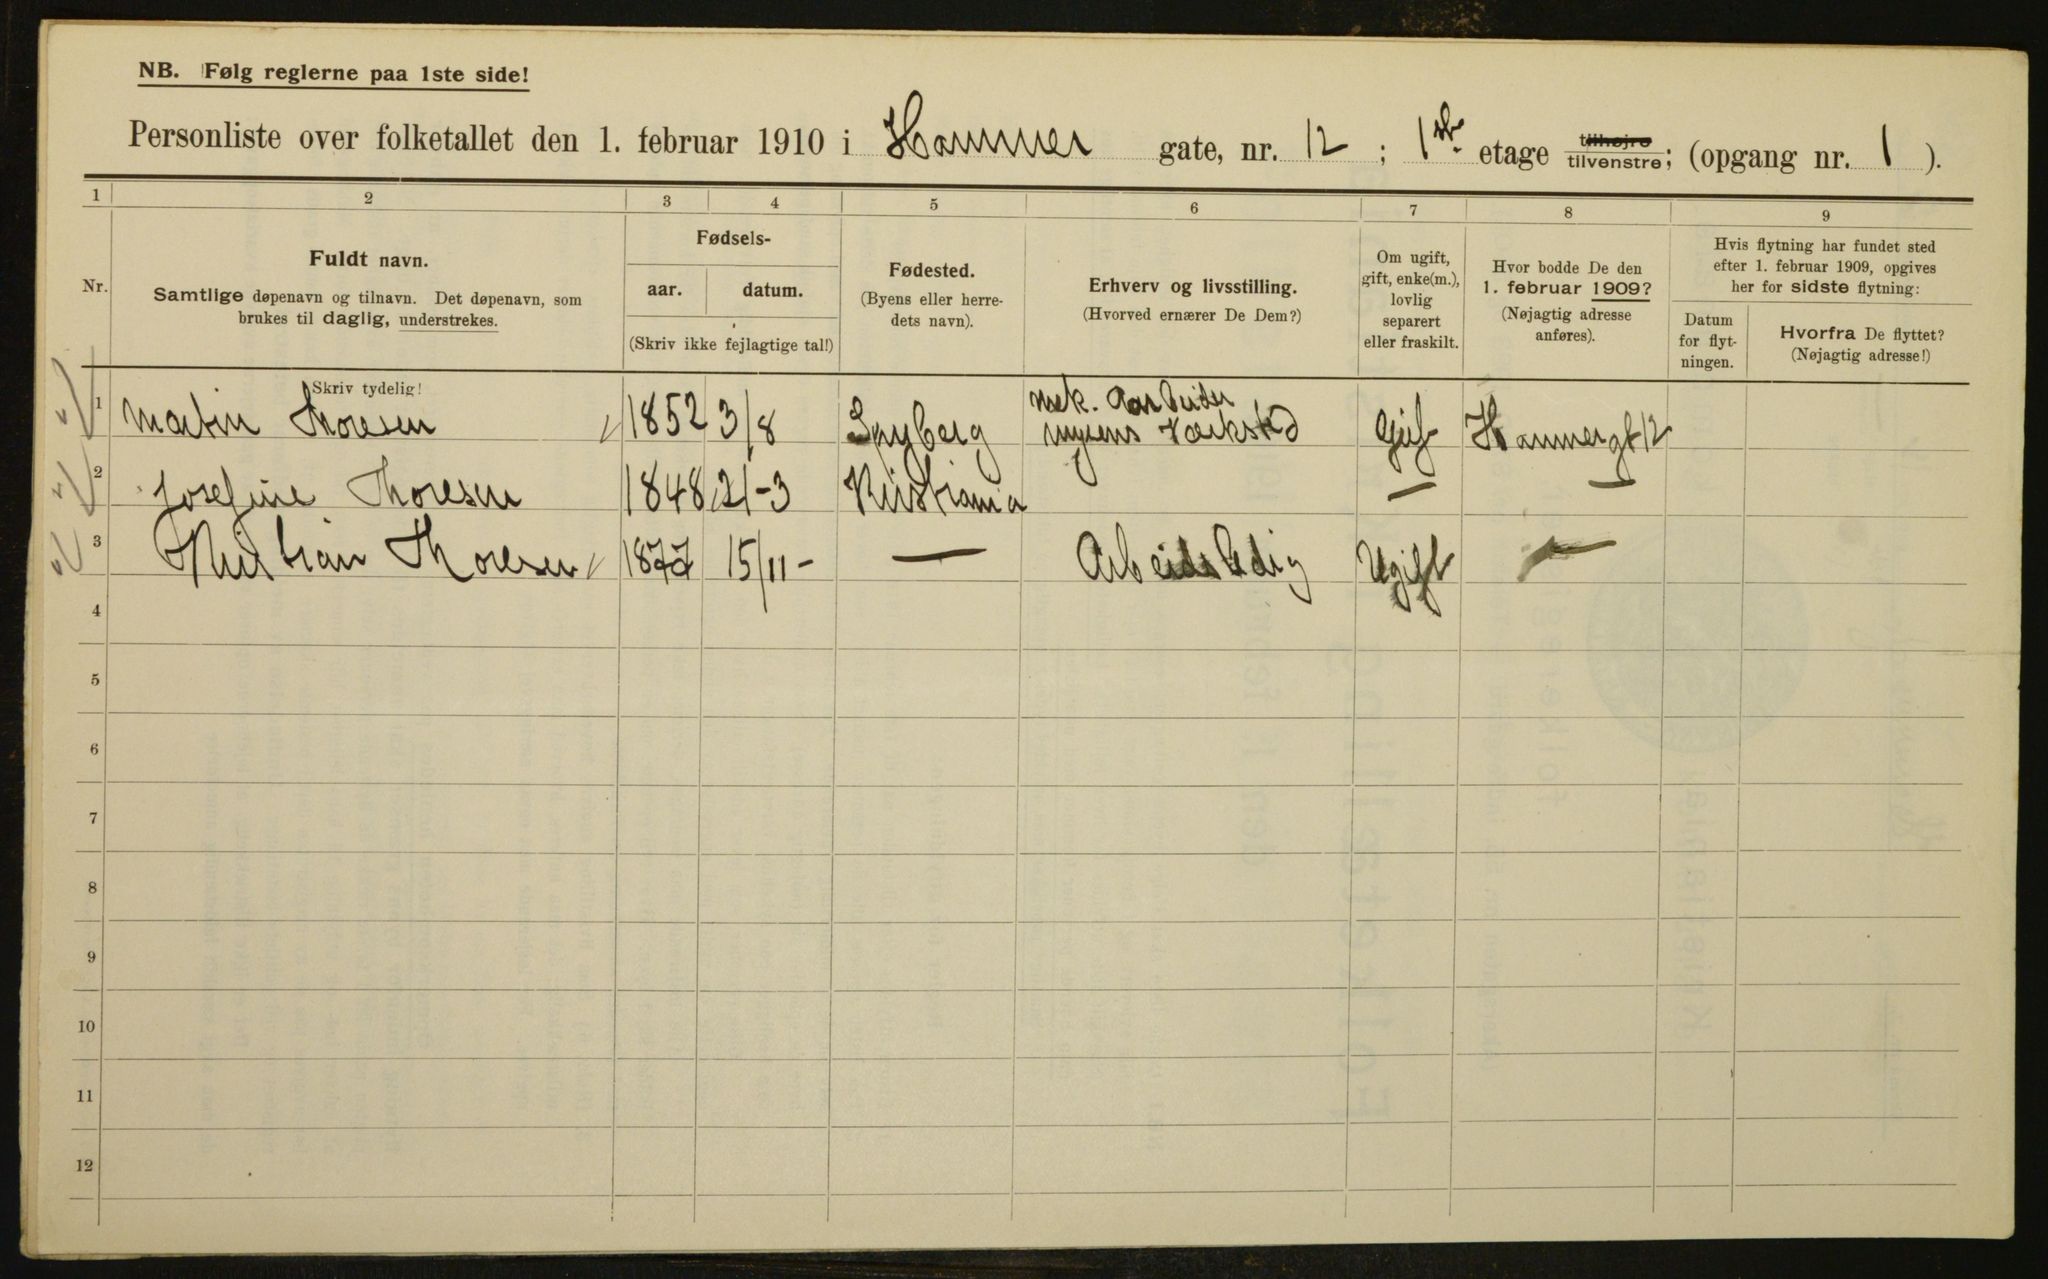 NB. Følg reglerne paa 1ste side!
Personliste over folketallet den 1. februar 1910 i Hammer gate, nr. 12 ; 1ste etage tilhøjre tilvenstre; (opgang nr. 1 ).
1 2 3 4 5 6 7 8 9
Nr.
Fuldt navn.
Samtlige døpenavn og tilnavn. Det døpenavn, som
brukes til daglig, understrekes.
Skriv tydelig!
Fødsels-
aar. datum.
(Skriv ikke fejlagtige tal!)
Fødested.
(Byens eller herre-
dets navn).
Erhverv og livsstilling.
(Hvorved ernærer De Dem?)
Om ugift,
gift, enke(m.),
lovlig
separert
eller fraskilt.
Hvor bodde De den
1. februar 1909?
(Nøjagtig adresse
anføres).
Hvis flytning har fundet sted
efter 1. februar 1909, opgives
her for sidste flytning:
Datum
for flyt-
ningen.
Hvorfra De flyttet?
(Nøjagtig adresse!)
mek. Arbeider
1 Martin Thoresen 1852 3/8 Spyberg myrens Værksted Gift Hammergt 12
2 Josefine Thoresen 1848 21-3 Kristiania — —
3 Kristian Thoresen 1877 15/11- — Arbeidsledig Ugift —
4
5
6
7
8
9
10
11
12